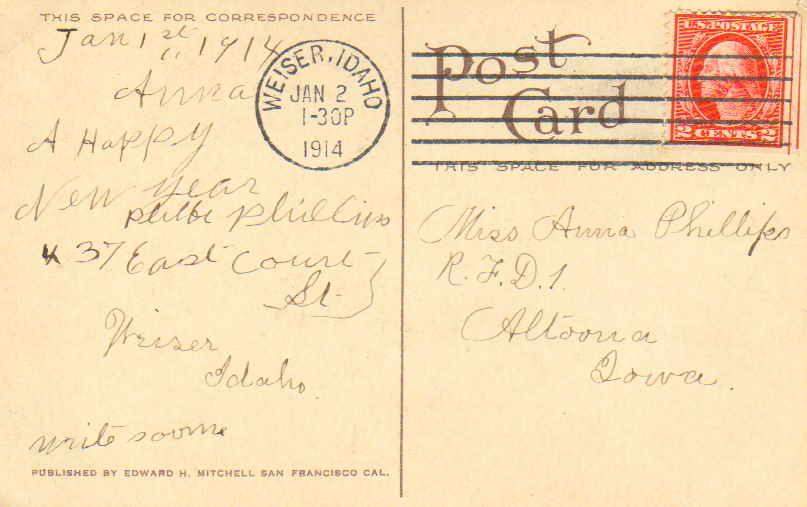 THIS SPACE FOR CORRESPONDENCE
Jan 1st 1914
Anna
A Happy
New Year
Phillips
37 East Court
St.
Weiser
Idaho.
write soon
PUBLISHED BY EDWARD H. MITCHELL SAN FRANCISCO CAL.
WEISER, IDAHO
JAN 2
1-30P
1914
Post
Card
U.S. POSTAGE
2 CENTS 2
THIS SPACE FOR ADDRESS ONLY
Miss Anna Phillips
R.F.D.1.
Altoona
Iowa.